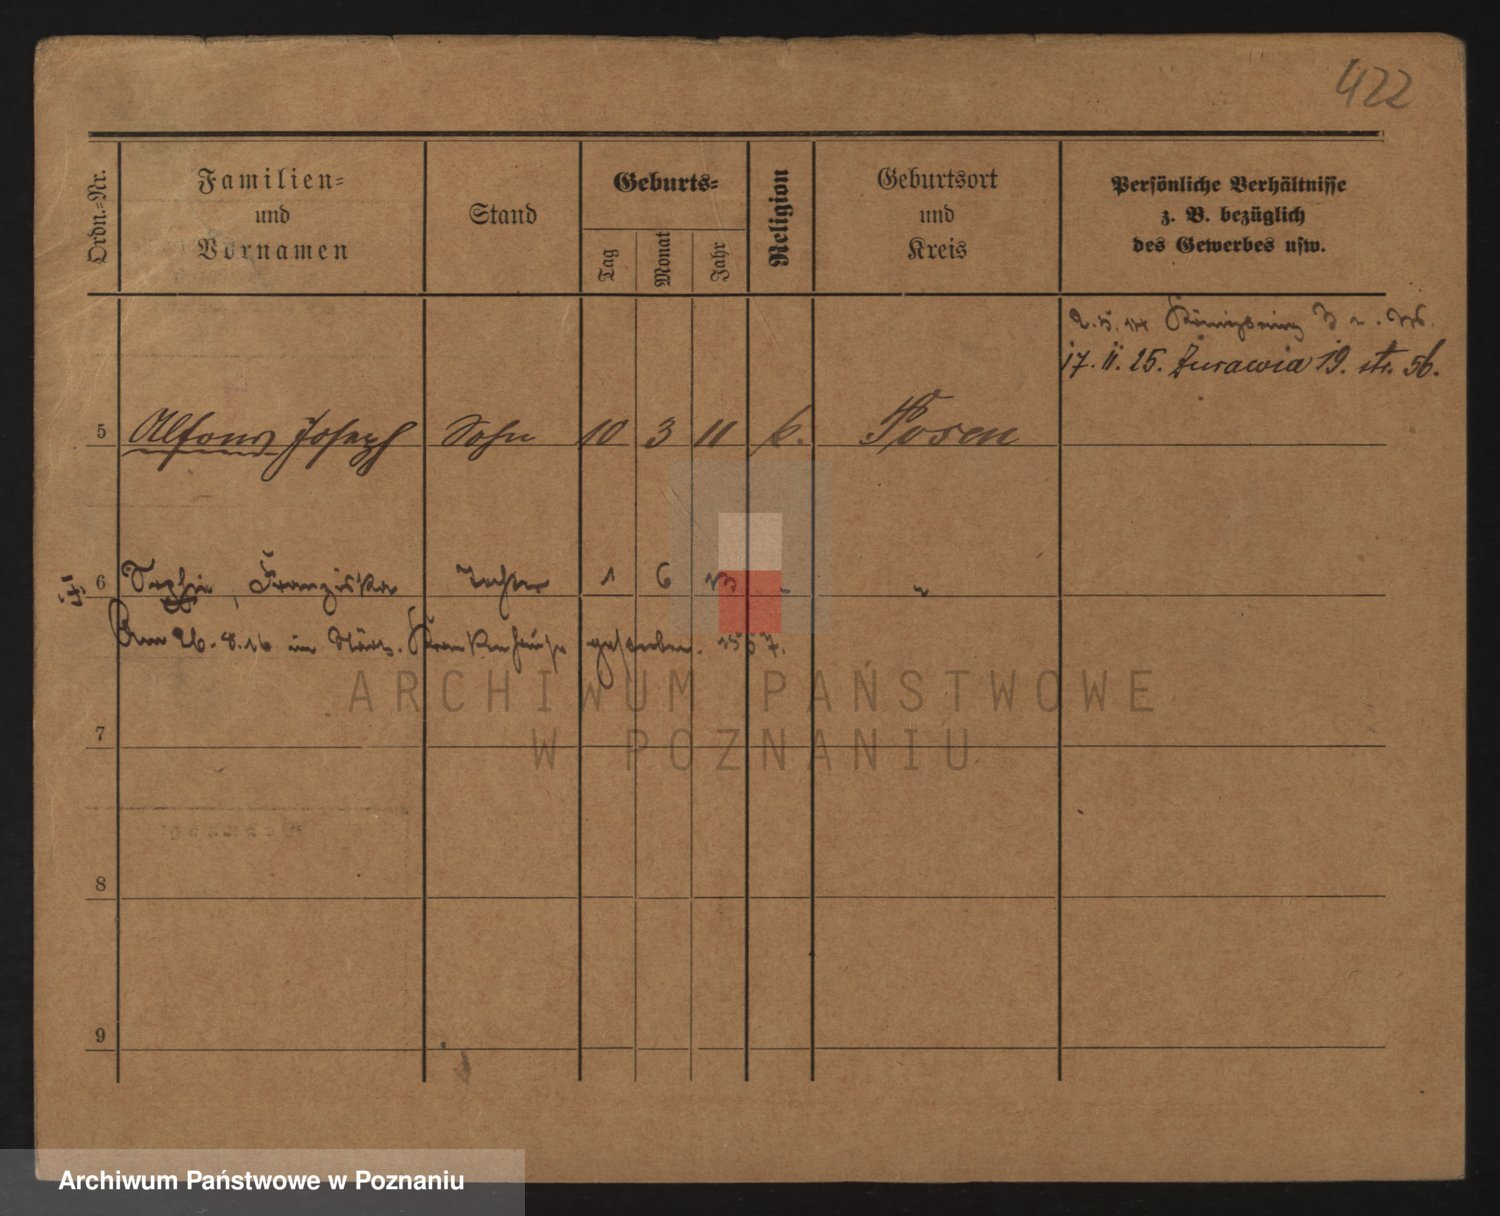 422
Ordn.-Nr.
Familien-
und
Vornamen
Stand
Geburts-
Tag
Monat
Jahr
Religion
Geburtsort
und
Kreis
Persönliche Verhältnisse
z. B. bezüglich
des Gewerbes usw.
2.5.14 Königsring
17. II. 25. Żurawia 19. str. 56.
5 Alfons Joseph Sohn 10 3 11 k. Posen
6 Sophie, Franziska Tochter 1 6 13 - "
Am 26.8.16 im Städt. Krankenhause gestorben. 1557.
7
8
9
ARCHIWUM PAŃSTWOWE
W POZNANIU
Archiwum Państwowe w Poznaniu